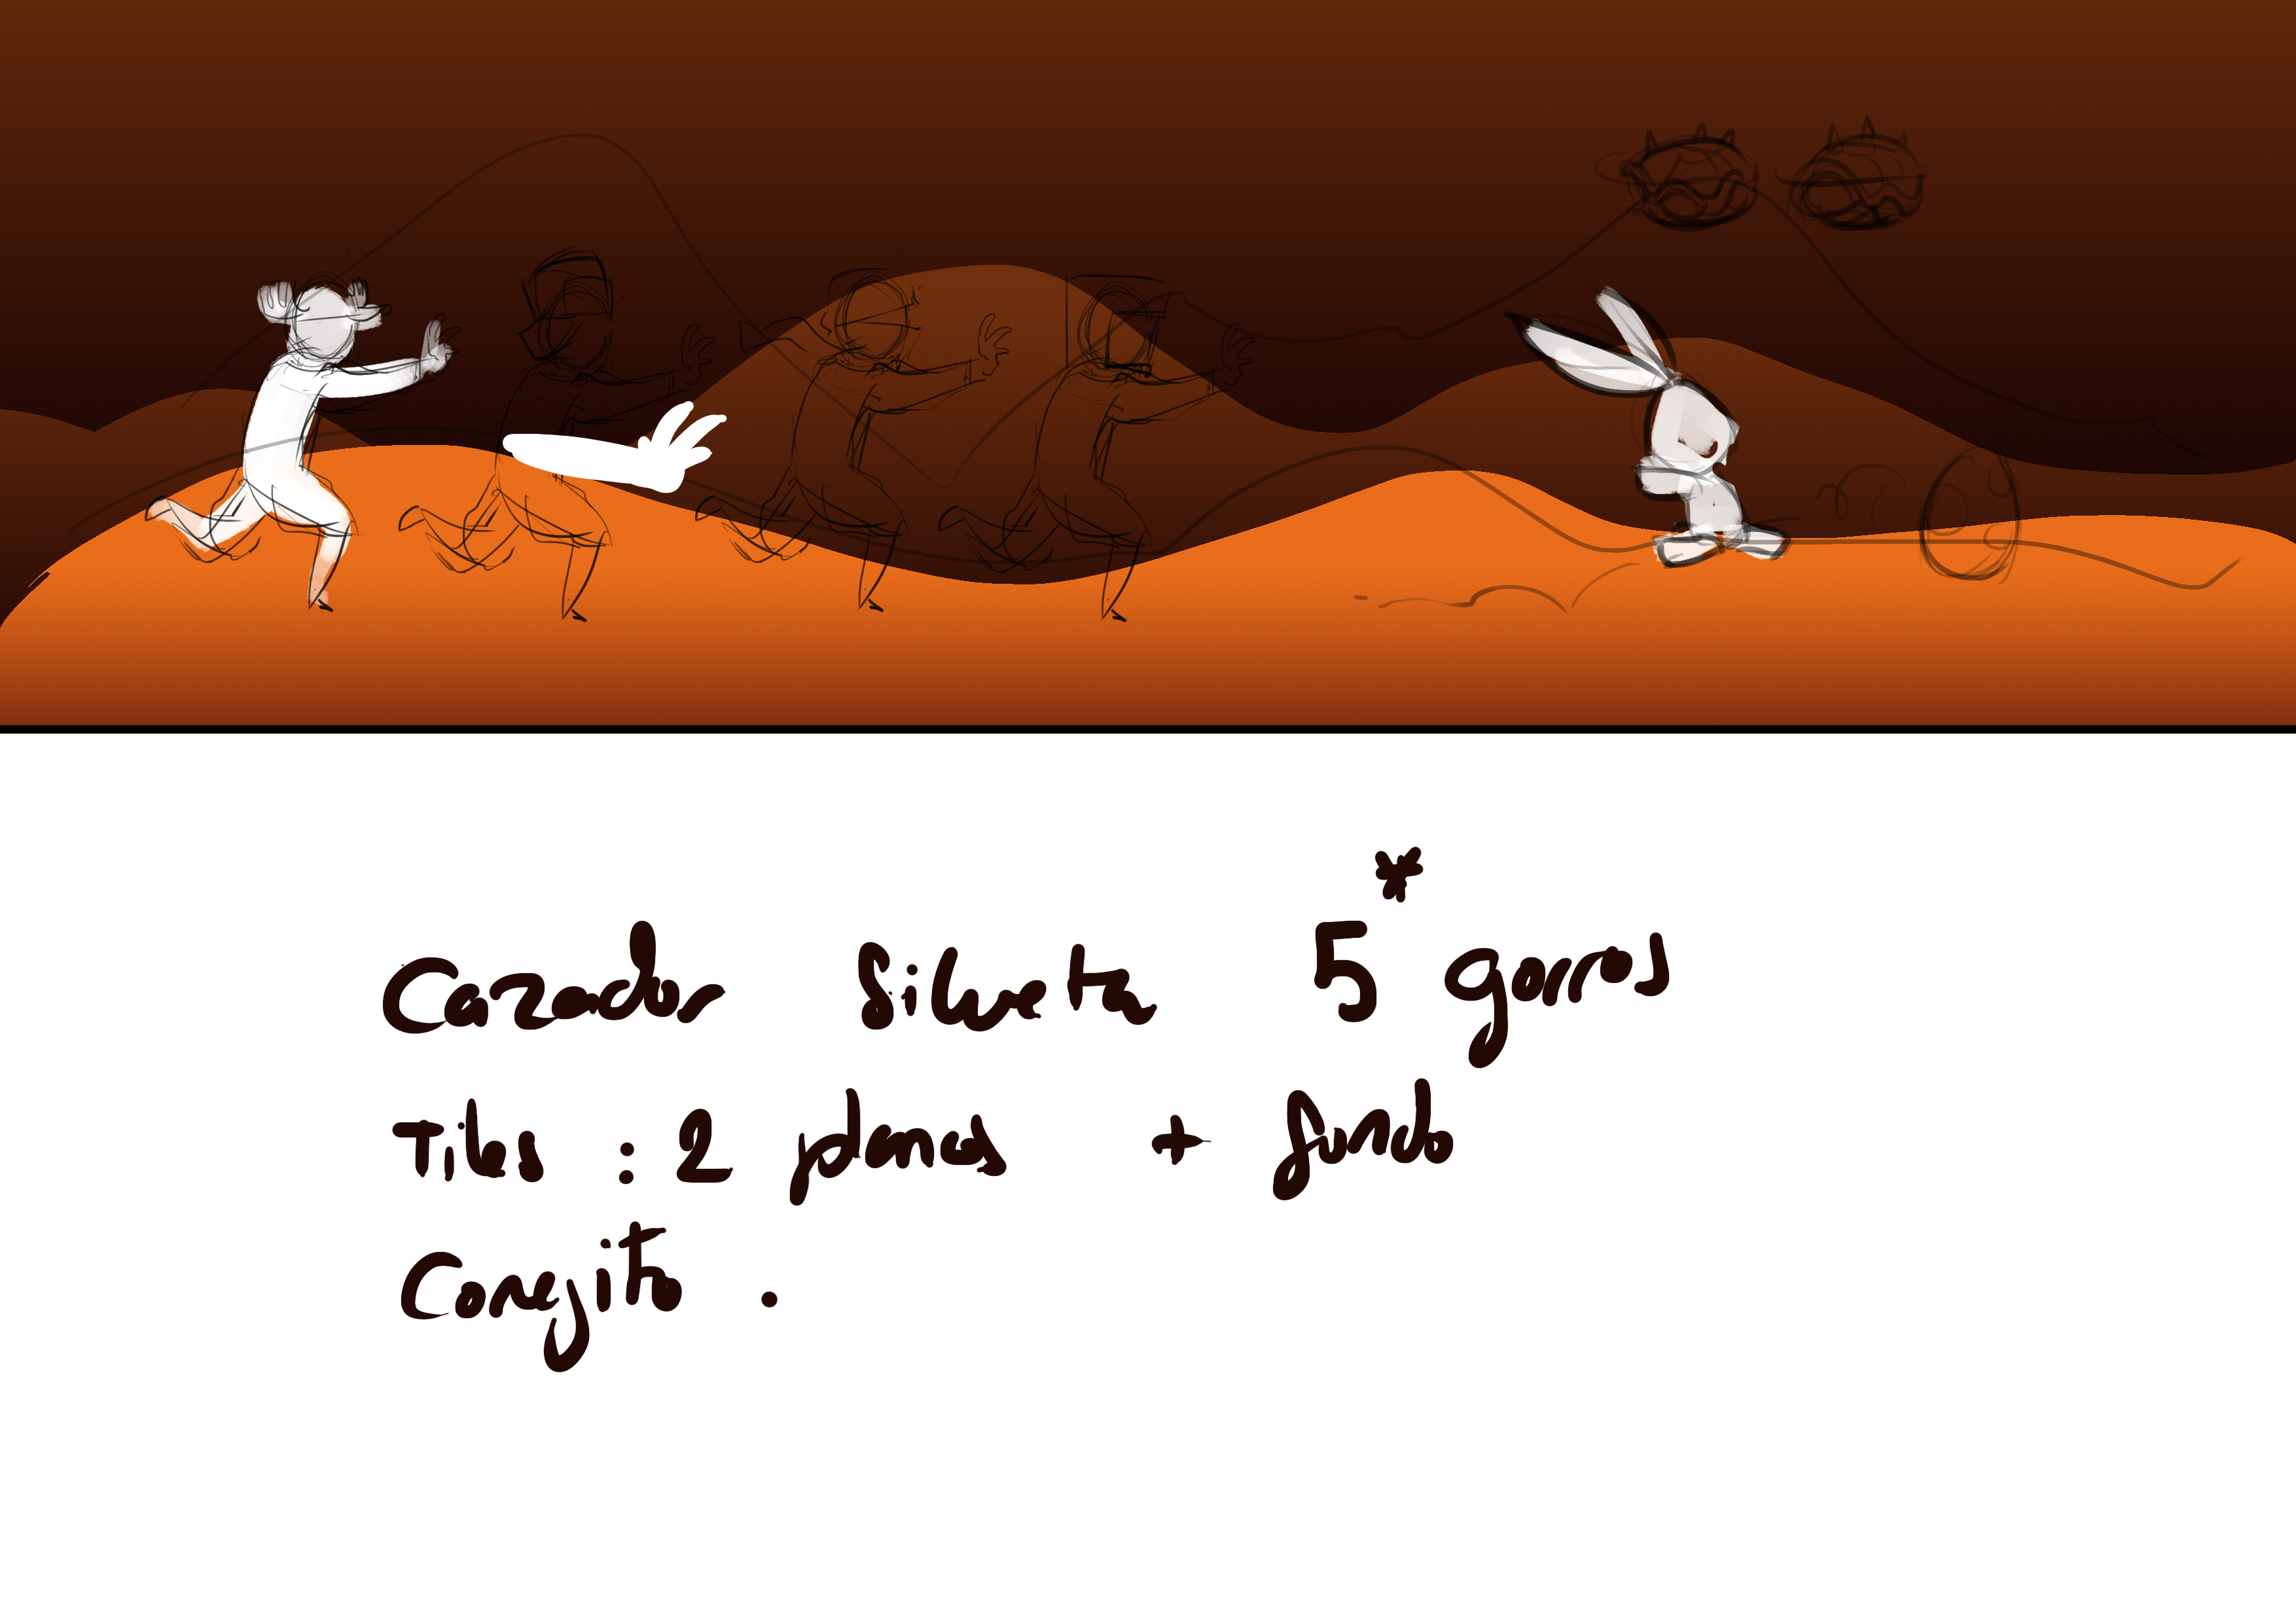 Cazador Silueta 5* gorros
Tiles : 2 planos + fondo
Conejito .